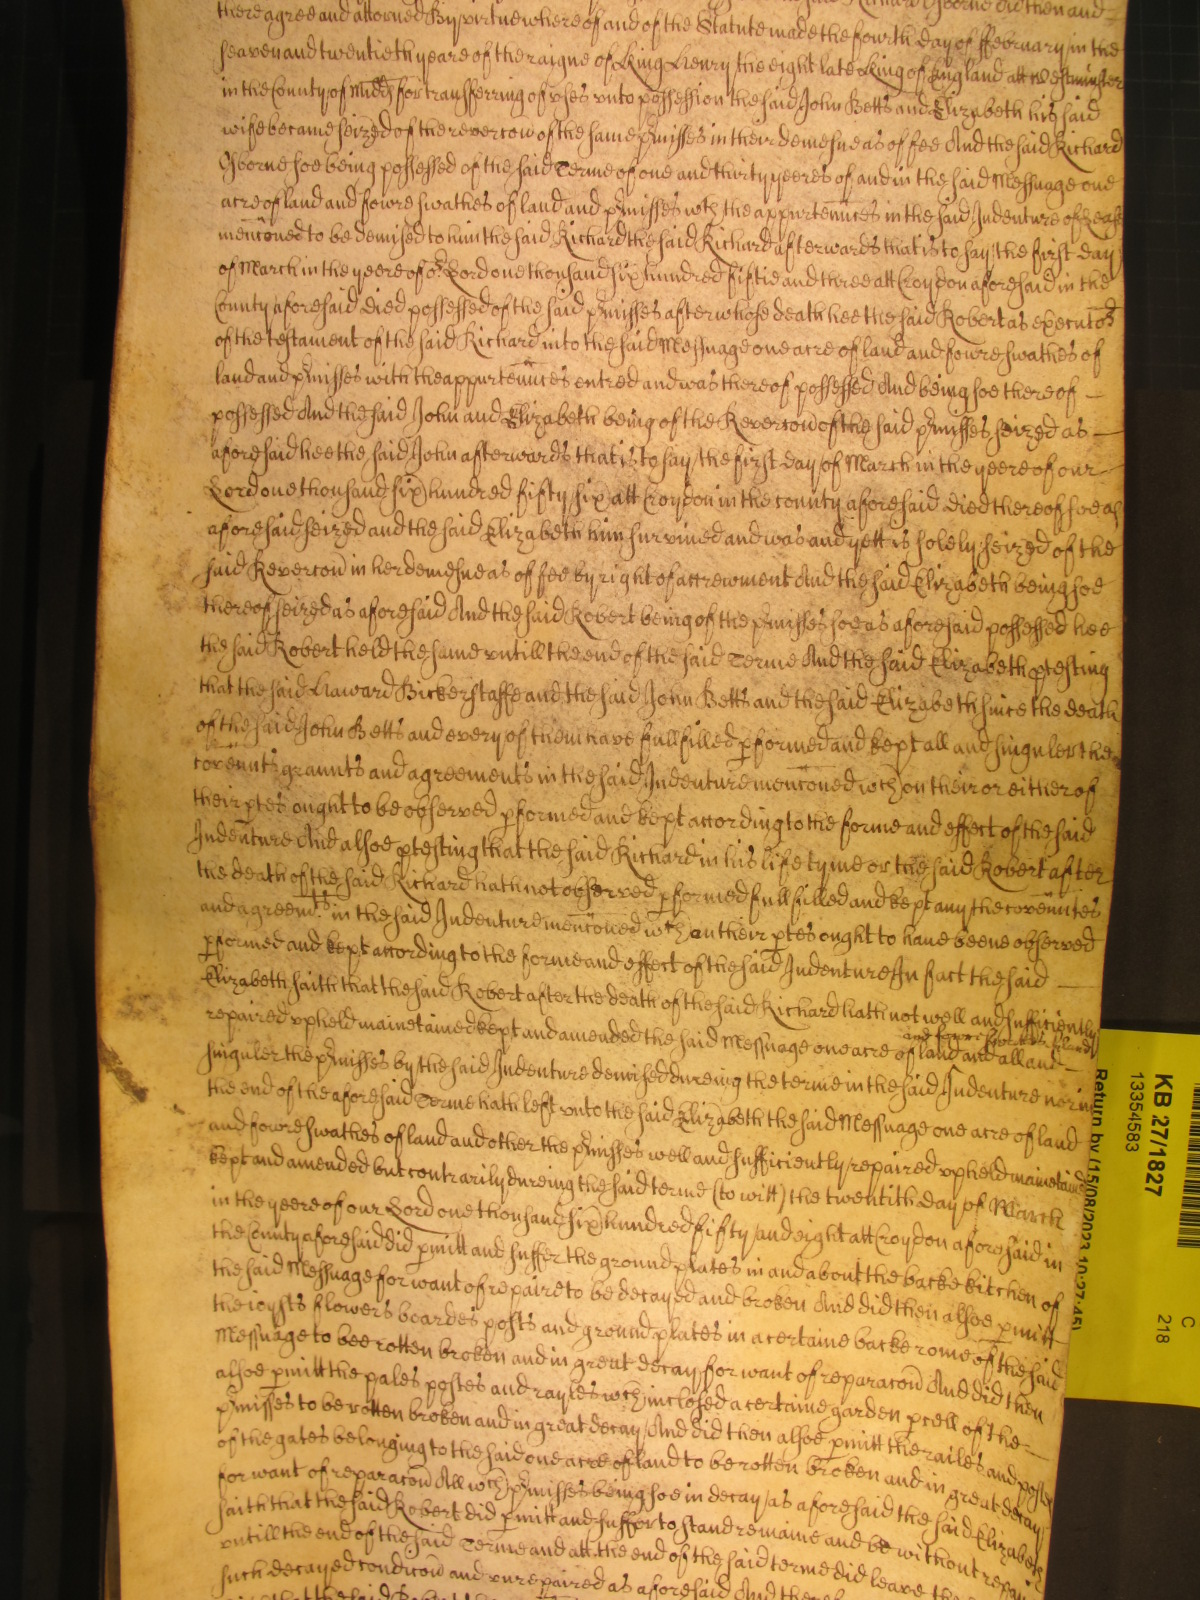 Richard Osborne did then and
there agree and attorned By virtue whereof and of the Statute made the fourth day of ffebruary in the
seaven and twentieth yeare of the raigne of King Henry the eight late King of England att Westminster
in the County of Midd for transferring of vses vnto possession the said John Betts and Elizabeth his said
wife became seized of the revercon of the same pmisses in their demesne as of fee And the said Richard
Osborne soe being possessed of the said Terme of one and thirty yeeres of and in the said Messuage one
acre of land and fowre swathes of land and pmisses wth the appurtennces in the said Indenture of Lease
menconed to be demised to him the said Richard the said Richard afterwards that is to say the first day
of March in the yeere of or Lord one thousand six hundred fiftie and three att Croydon aforesaid in the
County aforesaid died possessed of the said pmisses after whose death hee the said Robert as executor
of the testament of the said Richard into the said Messuage one acre of land and fowre swathes of
land and pmisses with the appurtennces entred and was thereof possessed And being soe thereof
possessed And the said John and Elizabeth being of the Revercon of the said pmisses seized as
aforesaid hee the said John afterwards that is to say the first day of March in the yeere of our
Lord one thousand six hundred fifty six att Croydon in the county aforesaid died thereof soe as
aforesaid seized and the said Elizabeth him survived and was and yett is solely seized of the
said Revercon in her demesne as of fee by right of accrewment And the said Elizabeth being soe
thereof seized as aforesaid And the said Robert being of the pmisses soe as aforesaid possessed hee
the said Robert held the same vntill the end of the said Terme And the said Elizabeth ptesting
that the said Haward Bickerstaffe and the said John Betts and the said Elizabeth since the death
of the said John Betts and every of them have fullfilled pformed and kept all and singuler the
covennts graunts and agreements in the said Indenture menconed wch on their or either of
their ptes ought to be observed pformed and kept according to the forme and effect of the said
Indenture And alsoe ptesting that the said Richard in his life tyme or the said Robert after
the death of the said Richard hath not observed pformed fullfilled and kept any the covennts
and agreemts in the said Indenture menconed wch on their ptes ought to have beene observed
pformed and kept according to the forme and effect of the said Indenture In fact the said
Elizabeth saith that the said Robert after the death of the said Richard hath not well and sufficiently
repaired vpheld mainetained kept and amended the said Messuage one acre of land and all and
and fowre swathes of land
singuler the pmisses by the said Indenture demised dureing the terme in the said Indenture nor in
the end of the aforesaid Terme hath left vnto the said Elizabeth the said Messuage one acre of land
and fowre swathes of land and other the pmisses well and sufficiently repaired vpheld mainetained
kept and amended but contrarily dureing the said terme (to witt) the twentith day of March
in the yeere of our Lord one thousand six hundred fifty and eight att Croydon aforesaid in
the County aforesaid did pmitt and suffer the ground plates in and about the backe kitchen of
the said Messuage for want of repaire to be decayed and broken And did then alsoe pmitt
the ioysts flowers boardes posts and ground plates in a certaine backe rome of the said
Messuage to bee rotten broken and in great decay for want of reparacon And did then
alsoe pmitt the pales postes and rayles wch inclosed a certaine garden pcell of the
pmisses to be rotten broken and in great decay And did then alsoe pmitt the railes and postes
of the gates belonging to the said one acre of land to be rotten broken and in great decay
for want of reparacon All wch pmisses being soe in decay as aforesaid the said Elizabeth
saith that the said Robert did pmitt and suffer to stand remaine and be without repaire
vntill the end of the said Terme and att the end of the said terme did leave the
such decayed condicon and vnrepaired as aforesaid And
KB 27/1827
13354583
Return by (15/08/2023 10:27:45)
C
218